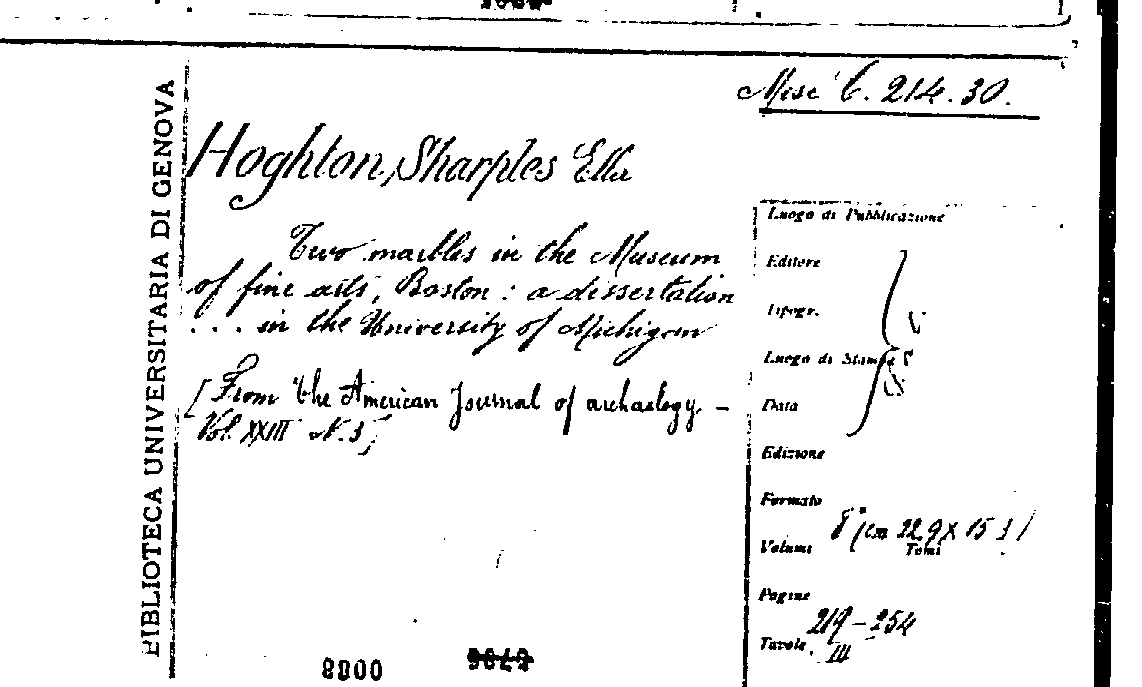 Misc. C. 214.30.
BIBLIOTECA UNIVERSITARIA DI GENOVA
Hoghton, Sharples Ella
Two marbles in the Museum
of fine arts, Boston: a dissertation
... in the University of Michigan
[From the American Journal of archaelogy. –
Vol. XXIII N. 3]
Luogo di Pubblicazione
Editore
Tipogr.
Luogo di Stampa
Data
Edizione
Formato
8° (cm 22.9 X 15.3)
Volumi Tomi
Pagine
219–254
Tavole. III
8800